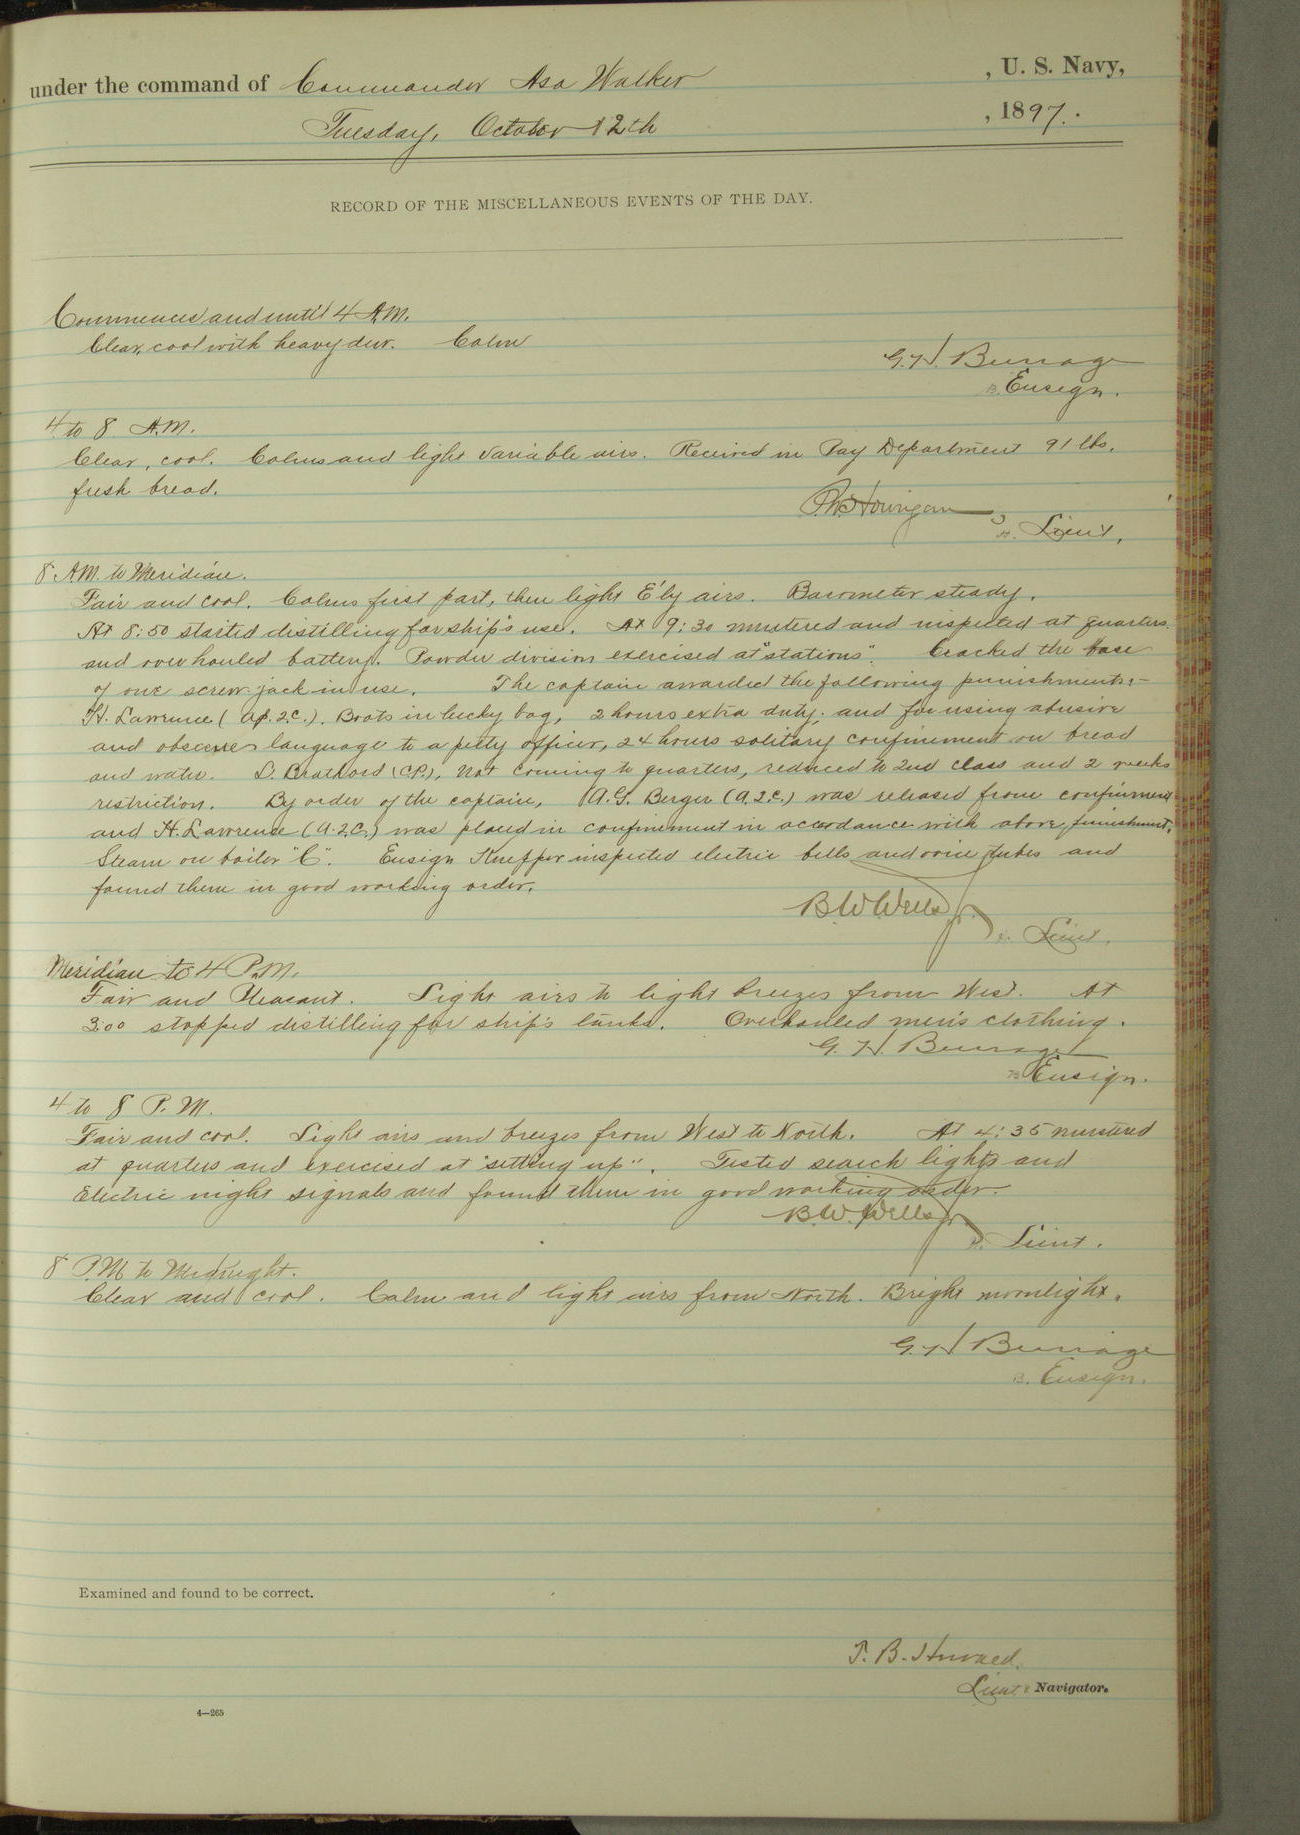 under the command of Commander Asa Walker , U. S. Navy,
Tuesday, October 12th , 1897.
RECORD OF THE MISCELLANEOUS EVENTS OF THE DAY.
Commences and until 4 A.M.
Clear, cool with heavy dew. Calm
G. H. Burrage
Ensign.
4 to 8 A.M.
Clear, cool. Calms and light variable airs. Received in Pay Department 91 lbs.
fresh bread.
P. W. Hourigan
Lieut.
8 A.M. to Meridian.
Fair and cool. Calms first part, then light E'ly airs. Barometer steady.
At 8:50 started distilling for ship's use. At 9:30 mustered and inspected at quarters
and overhauled battery. Powder division exercised at "stations". Cracked the base
of one screw-jack in use. The captain awarded the following punishments:-
H. Lawrence (Ap. 2.C.). Boots in lucky bag, 2 hours extra duty; and for using abusive
and obscene language to a petty officer, 24 hours solitary confinement on bread
and water. D. (C.P.), Not coming to quarters, reduced to 2nd class and 2 weeks
restriction. By order of the captain, A. G. Berger (A.2.C.) was released from confinement
and H. Lawrence (A.2.C.) was placed in confinement in accordance with above punishment.
Steam on boiler "C". Ensign Knepper inspected electric bells and voice tubes and
found them in good working order.
B. W. Wells Jr.
Lieut.
Meridian to 4 P.M.
Fair and Pleasant. Light airs to light breezes from West. At
3:00 stopped distilling for ship's tanks. Overhauled men's clothing.
G. H. Burrage
Ensign.
4 to 8 P.M.
Fair and cool. Light airs and breezes from West to North. At 4:35 mustered
at quarters and exercised at "setting up". Tested search lights and
Electric night signals and found them in good working order.
B. W. Wells Jr.
Lieut.
8 P.M. to Midnight.
Clear and cool. Calm and light airs from North. Bright moonlight.
G. H. Burrage
Ensign.
Examined and found to be correct.
T. B. Howard.
Lieut. & Navigator.
4—265